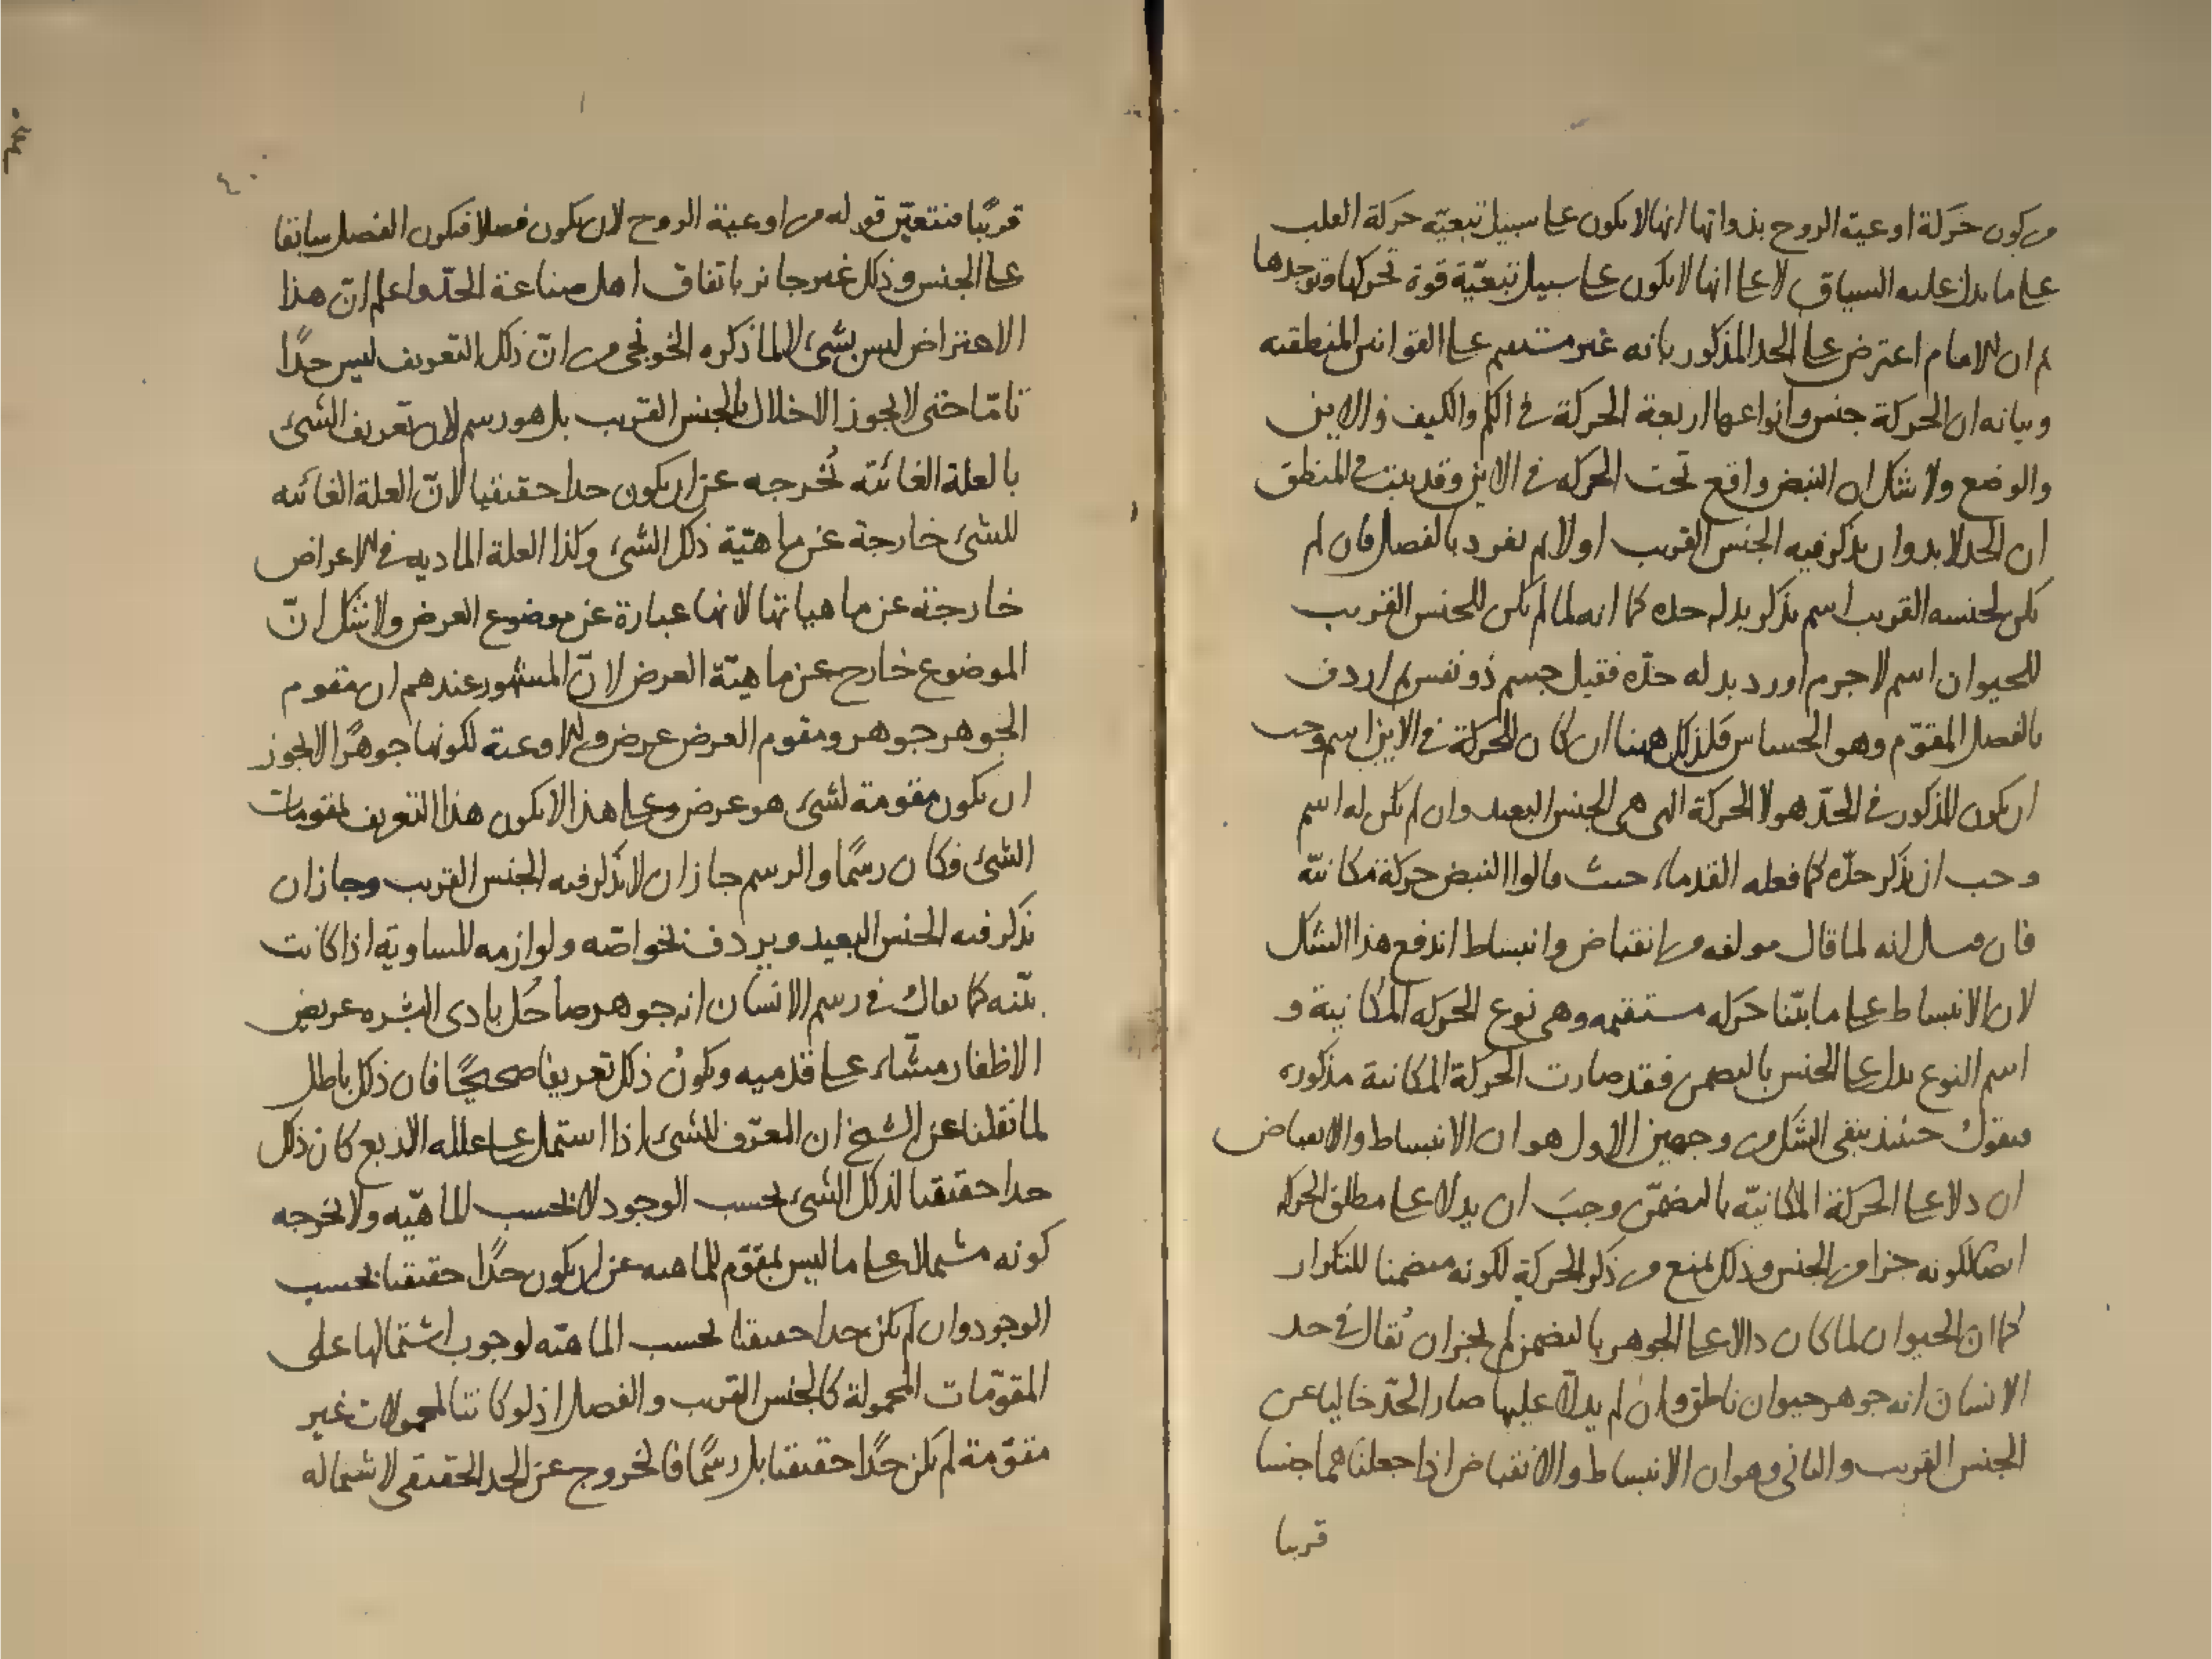 من كون حركة اوعية الروح بذواتها انها لا يكون على سبيل تبعيّة حركة القلب
على ما يدل عليه السياق لا على انها لا يكون على سبيل تبعيّة قوة تحركها وتوجدها
ثم ان الامام اعترض على الحد المذكور بانه غير مستقيم على القوانين المنطقيه
وبيانه ان الحركة جنس وانواعها اربعة الحركة في الكم والكيف والاين
والوضع ولا شك ان النبض واقع تحت الحركه في الاين وقد بينت في المنطق
ان الحد لا بد وان يذكر فيه الجنس القريب اولا ثم يفرد بالفصل فان لم
يكن لجنسه القريب اسم يذكر بدله حده كما انه لما لم يكن للجنس القريب
للحيوان اسم لا جرم اورد بدله حدّه فقيل جسم ذو نفس ثم اردف
بالفصل المقوّم وهو الحساس فلذلك ههنا ان كان للحركة في الاين اسم وجب
ان يكون المذكور في الحدّ هو لا الحركة التي هي الجنس البعيد وان لم يكن له اسم
وجب ان يذكر حدّه كما فعله القدماء حيث قالوا النبض حركة مكانيّة
فان قيل انه لما قال مولفه من انقباض وانبساط اندفع هذا الشك
لان الانبساط على ما بيّنا حركه مستقيمه وهي نوع الحركه المكانية و
اسم النوع يدل على الجنس بالتضمن فقد صارت الحركة المكانية مذكوره
فنقول حينئذ يبقى الشك من وجهين الاول هو ان الانبساط والانقباض
ان دلا على الحركة المكانيّة بالتضمّن وجبَ ان يدلا على مطلق الحركه
ايضا لكونه جزا من الجنس وذلك يمنع من ذكر الحركة لكونه متضمنا للتكرار
كما ان الحيوان لما كان دالا على الجوهر بالتضمن لم يجز ان يُقال في حد
الانسان انه جوهر حيوان ناطق وان لم يدلّا عليها صار الحدّ خاليا عن
الجنس القريب والثاني وهو ان الانبساط والانقباض اذا جعلناهما جنسا
قريبا
٤٠
قريبًا فتتعيّن قوله من اوعية الروح لان يكون فصلا فيكون الفصل سابقا
على الجنس وذلك غير جائز باتفاق اهل صناعة الحدّ واعلم انّ هذا
الاعتراض ليس بشئ لا لما ذكره الخونجي من انّ ذلك التعريف ليس حدًا
تامّا حتى لا يجوز الاخلال بالجنس القريب بل هو رسم لان تعريف الشئ
بالعلة الغائيّة تُخرجه عن ان يكون حدا حقيقيا لانّ العلة الغائيه
للشئ خارجة عن ماهيّة ذلك الشئ وكذا العلة الماديه في الاعراض
خارجة عن ماهياتها لانها عبارة عن موضوع العرض ولا شك انّ
الموضوع خارج عن ماهيّة العرض لانّ المشهور عندهم ان مقوم
الجوهر جوهر ومقوم العرض عرض والاوعية لكونها جوهرًا لا يجوز
ان يكون مقومة لشئ هو عرض وعلى هذا لا يكون هذا التعريف بمقومات
الشئ فكان رسمًا والرسم جاز ان لا يُذكر فيه الجنس القريب وجاز ان
يذكر فيه الجنس البعيد ويردف بخواصّه ولوازمه المساوية اذا كانت
بيّنه كما يقال في رسم الانسان انه جوهر ضاحُك بادى البشره عريض
الاظفار مشّاء على قدميه ويكونُ ذلك تعريفا صحيحًا فان ذلك باطل
لما نقلنا عن الشيخ ان المعرّف للشئ اذا اشتمل على علله الاربع كان ذلك
حدا حقيقيا لذلك الشئ بحسب الوجود لا بحسب الماهيّه ولا يخرجه
كونه مشتملا على ما ليس بمقوّم للماهيه عن ان يكون حدًا حقيقيا بحسب
الوجود وان لم يكن حدا حقيقيا بحسب الماهيّه لوجوب اشتمالها على
المقوّمات المحمولة كالجنس القريب والفصل اذ لو كانت المحمولات غير
مقوّمة لم يكن حدًا حقيقيا بل رسمًا فالخروج عن الحد الحقيقي لاشتماله